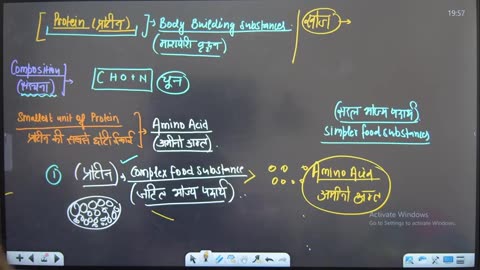 19:57
[ Protein (प्रोटीन) ] → Body Building Substances
खोज →
Composition
(संरचना)
CHO+N
Smallest unit of Protein
प्रोटीन की सबसे छोटी ईकाई
Amino Acid
(अमीनो अम्ल)
(सरल भोज्य पदार्थ)
Simplex food substances
① (प्रोटीन) → Complex food substance
(जटिल भोज्य पदार्थ)
Amino Acid
अमीनो अम्ल
Activate Windows
Go to Settings to activate Windows.